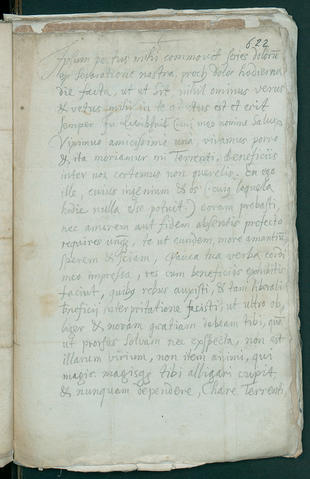 622
Ipsum pectus mihi commovit series dolorū
ex separatione nostra, proch dolor hodierna
die facta, ut ut sit, nihil ominus verus
& vetus mihi in te est et erit
semper (cui meo nomine Salus)
Viximus amicissime una, vivamus porro
& ita moriamur mi Terrenti, Beneficiis
inter nos certemus non querelis. En ego
ille, cuius ingenium & os (cuius loquela
hodie nulla esse potuit) coram probasti,
nec amorem aut fidem absentis profecto
requires unqq, te ut eundem, more amantiū
sperem & sciam, Pauca tua verba cordi
meo impressa, res cum beneficiis
faciunt, quibq rebus auxisti, & tam liberali
beneficii interpretatione fecisti, ut ultro ob,
liger & novam gratiam debeam tibi, quā
ut prorsus solvam nec exspecta, non est
illarum virium, non item animi, qui
magis magisqq tibi alligari cupit
& nunquam dependere, Chare Terrenti,